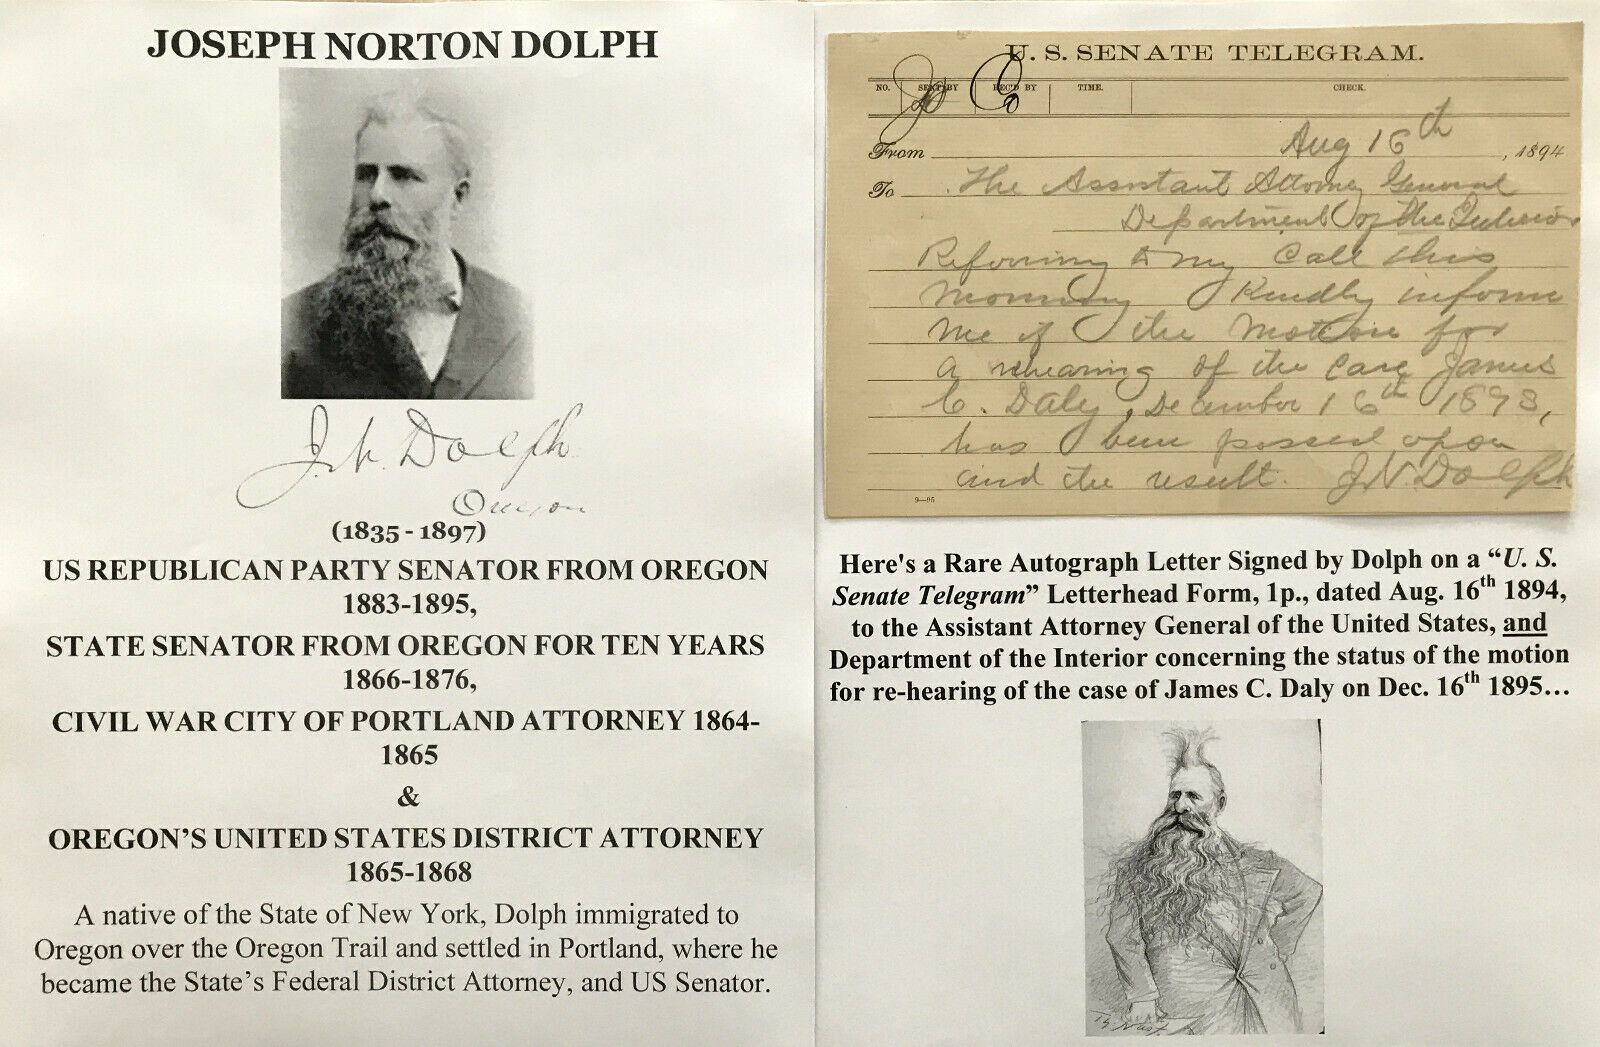 JOSEPH NORTON DOLPH
J. N. Dolph
Oregon
(1835 - 1897)
US REPUBLICAN PARTY SENATOR FROM OREGON
1883-1895,
STATE SENATOR FROM OREGON FOR TEN YEARS
1866-1876,
CIVIL WAR CITY OF PORTLAND ATTORNEY 1864-
1865
&
OREGON'S UNITED STATES DISTRICT ATTORNEY
1865-1868
A native of the State of New York, Dolph immigrated to
Oregon over the Oregon Trail and settled in Portland, where he
became the State's Federal District Attorney, and US Senator.
U. S. SENATE TELEGRAM.
NO. SENT BY REC'D BY TIME. CHECK.
From Aug 16th, 1894
To The Assistant Attorney General
Department of the Interior
Referring to my call this
morning kindly inform
me if the motion for
a rehearing of the case James
C. Daly, December 16th 1893,
has been passed upon
and the result. J. N. Dolph
9—95
Here's a Rare Autograph Letter Signed by Dolph on a “U. S.
Senate Telegram” Letterhead Form, 1p., dated Aug. 16th 1894,
to the Assistant Attorney General of the United States, and
Department of the Interior concerning the status of the motion
for re-hearing of the case of James C. Daly on Dec. 16th 1895…
Th Nast.